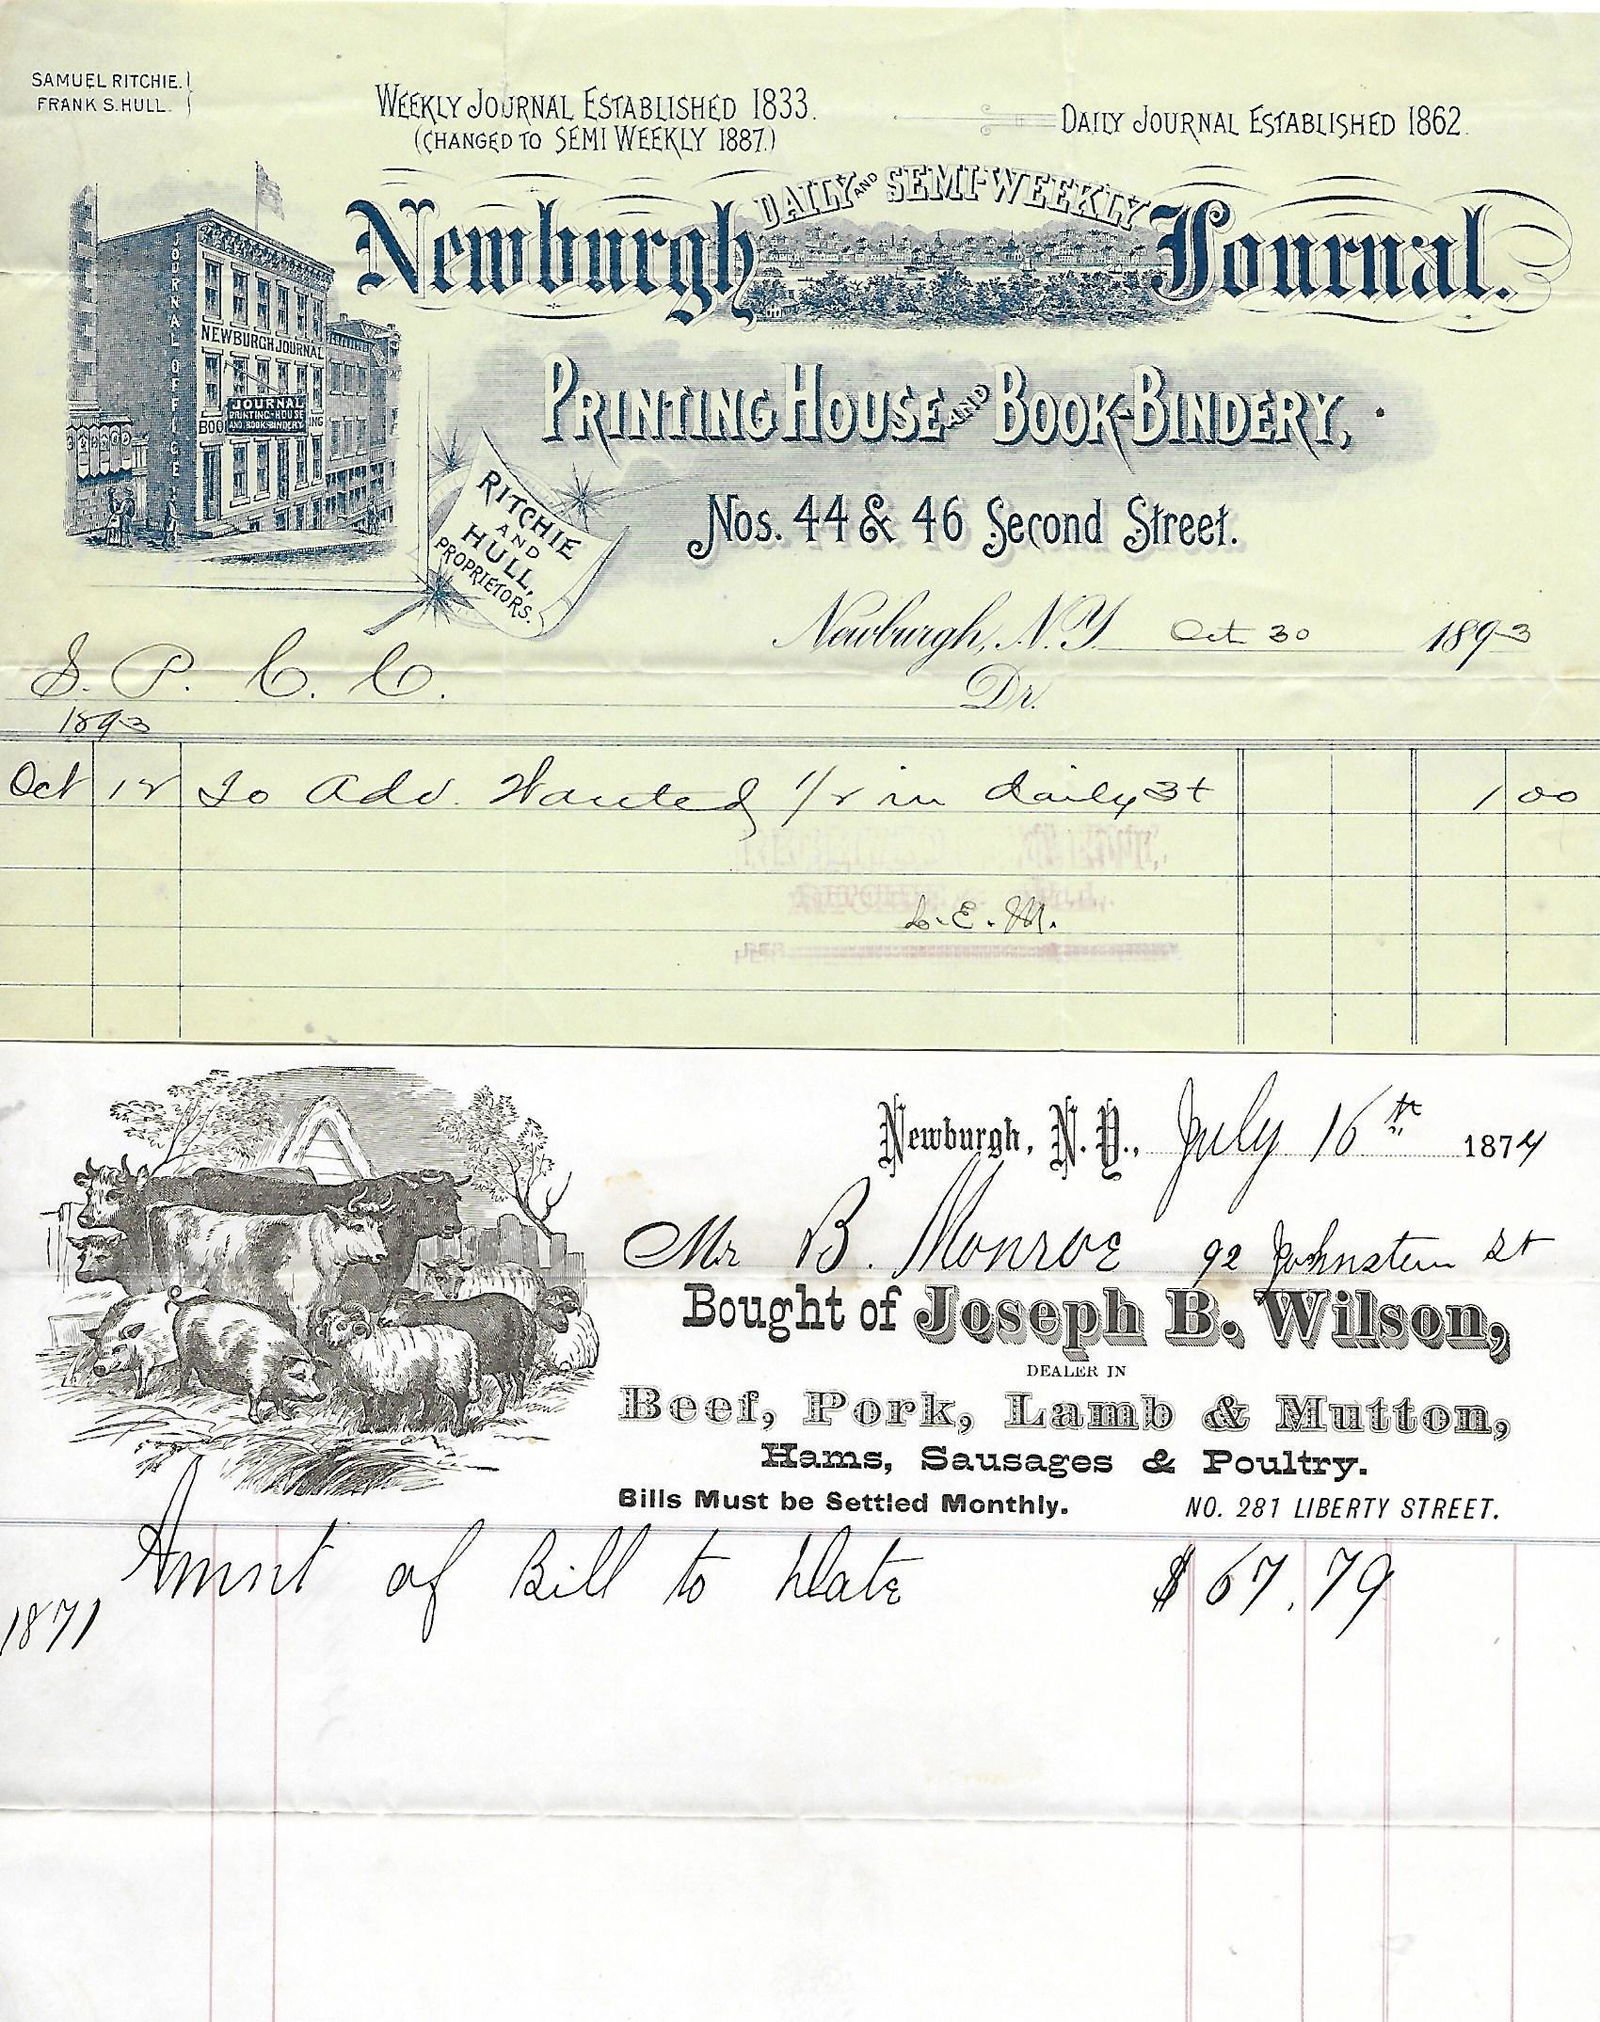 SAMUEL RITCHIE.
FRANK S. HULL.
WEEKLY JOURNAL ESTABLISHED 1833.
(CHANGED TO SEMI WEEKLY 1887.)
DAILY JOURNAL ESTABLISHED 1862.
DAILY AND SEMI-WEEKLY
Newburgh Journal.
JOURNAL OFFICE
NEWBURGH JOURNAL
JOURNAL
PRINTING-HOUSE
AND BOOK-BINDERY
BOO ING
PRINTING HOUSE AND BOOK-BINDERY,
RITCHIE
AND
HULL,
PROPRIETORS.
Nos. 44 & 46 Second Street.
Newburgh, N.Y. Oct 30 1893
S. P. C. C. Dr.
1893
Oct 12 To Adv. Wanted 1/2 in daily 3t 1 00
L. E. M.
Newburgh, N. Y., July 16th 1874
Mr B. Monroe 92 Johnston St
Bought of Joseph B. Wilson,
DEALER IN
Beef, Pork, Lamb & Mutton,
Hams, Sausages & Poultry.
Bills Must be Settled Monthly. NO. 281 LIBERTY STREET.
Amnt of Bill to Date $67.79
1871